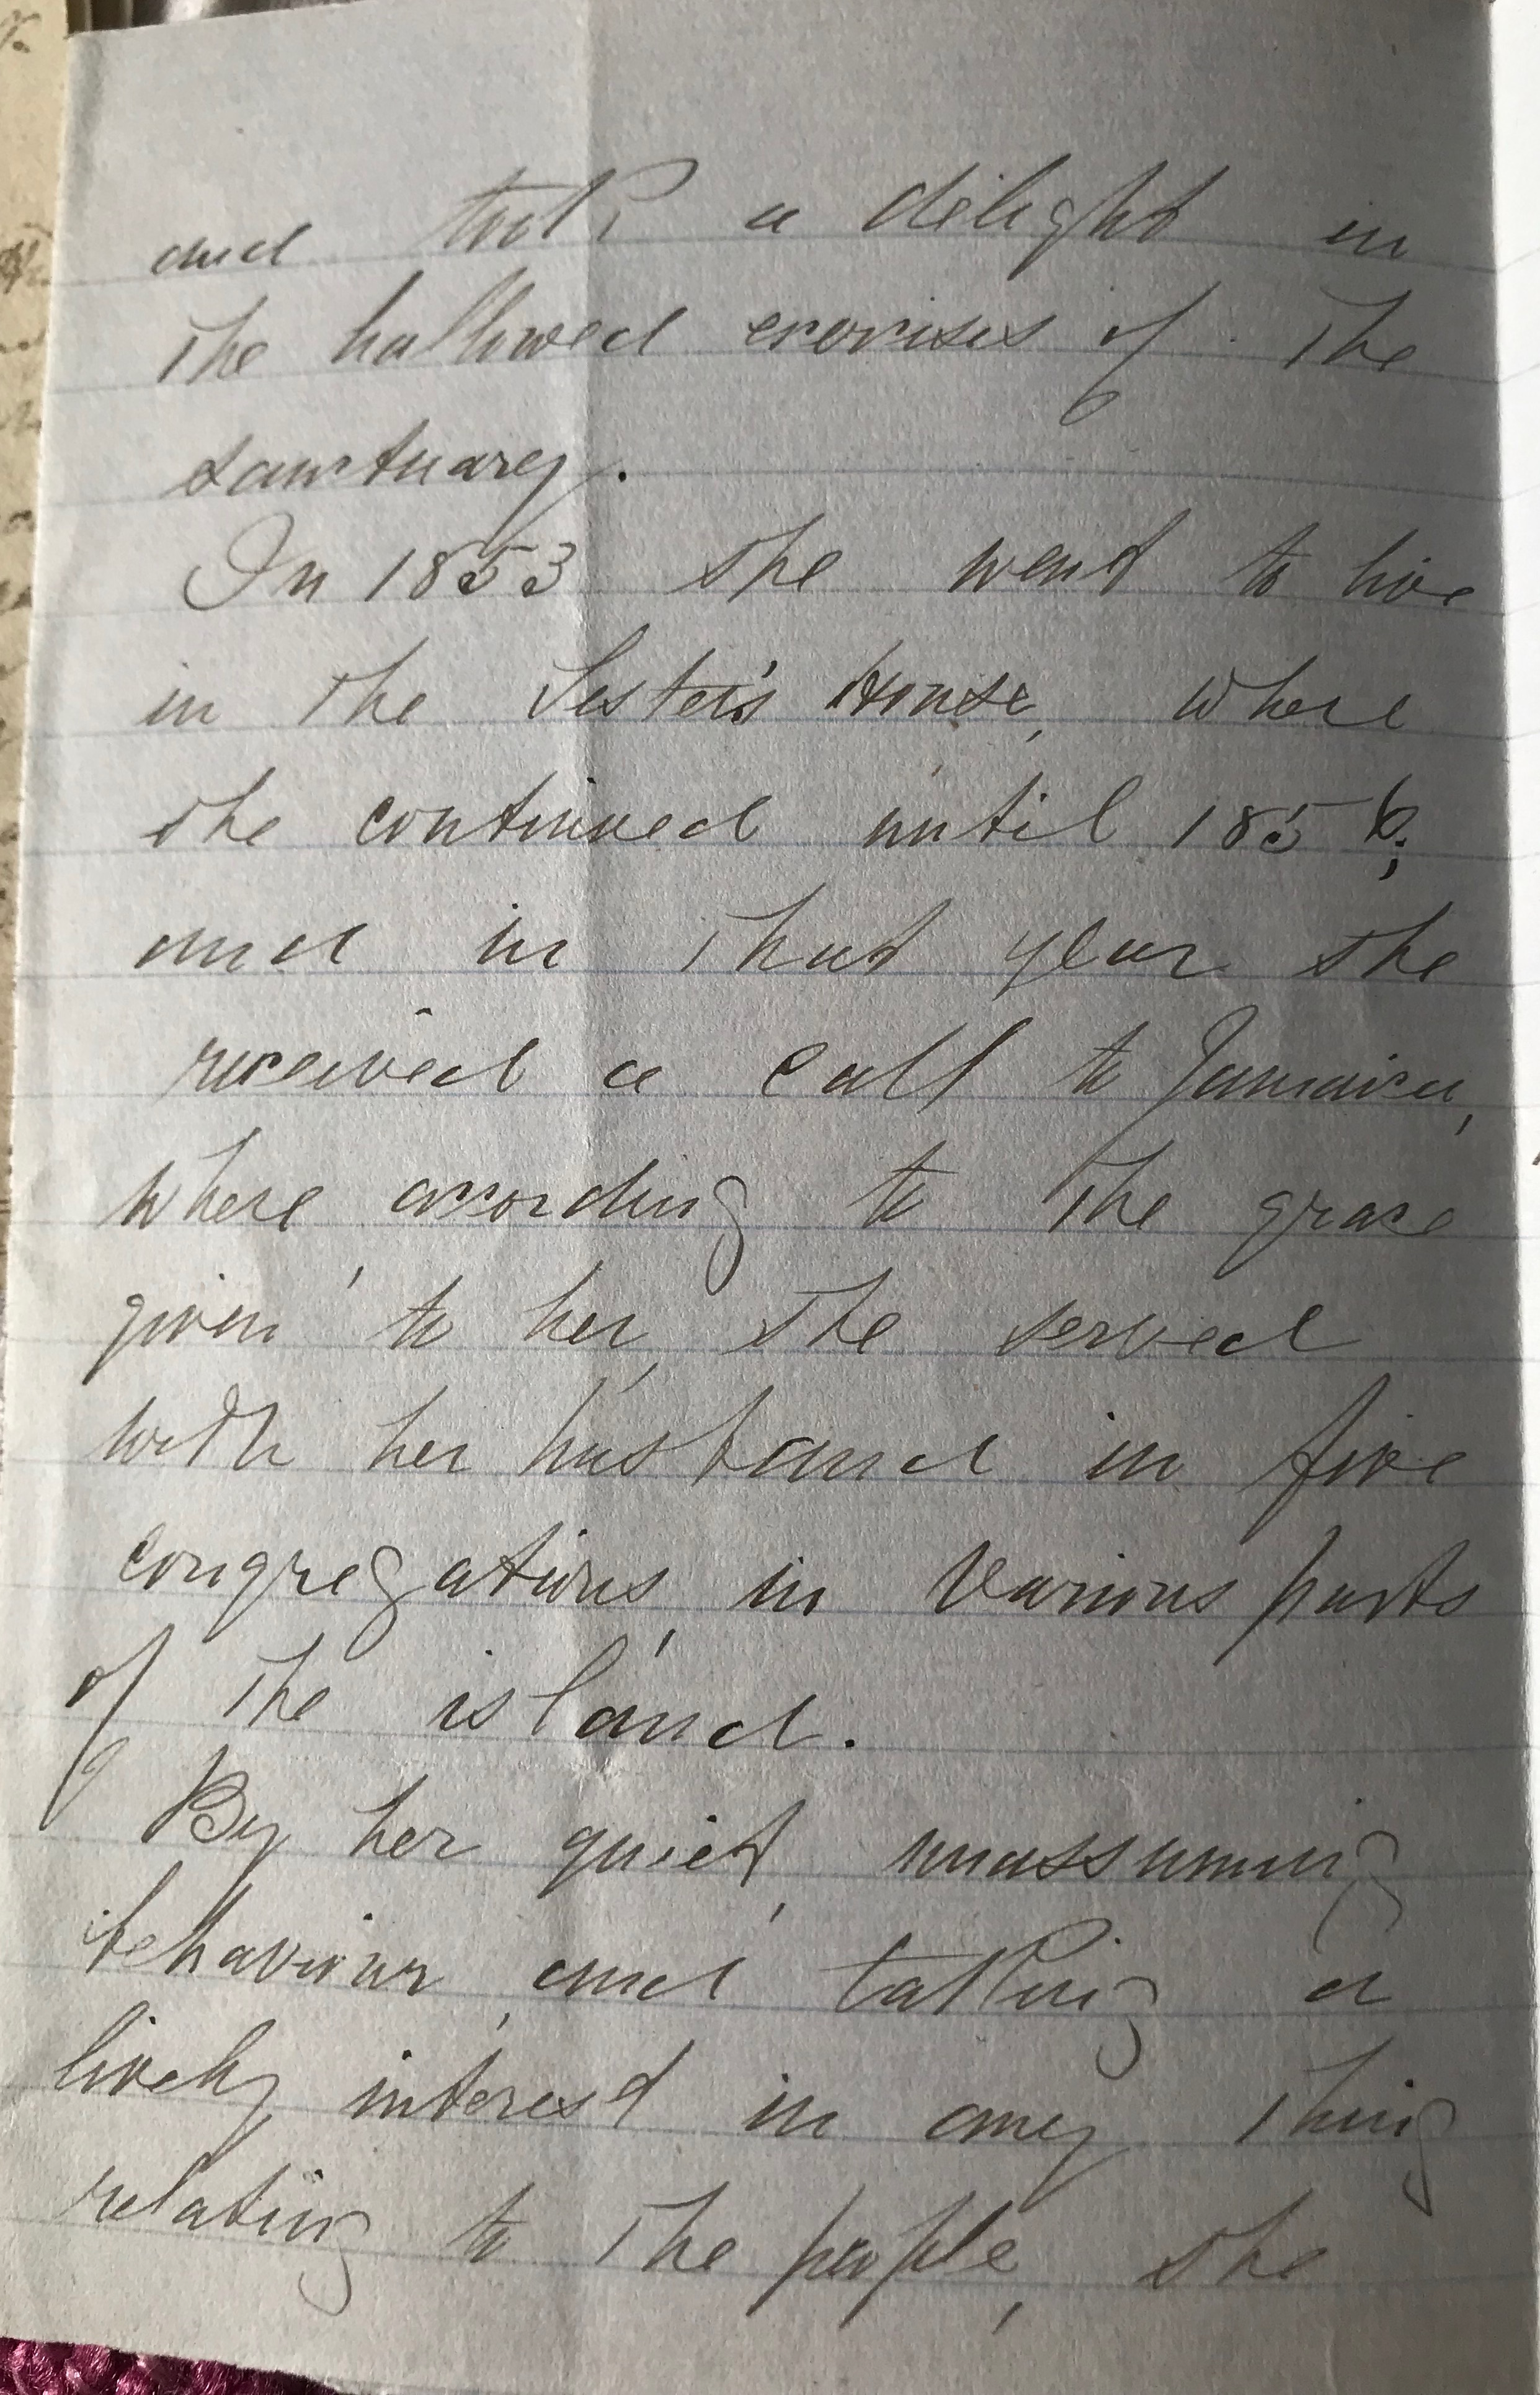 and took a delight in
the hallowed exercises of the
sanctuary.
In 1853 she went to live
in the Sister's House, where
she continued until 1856;
and in that year she
received a call to Jamaica,
where, according to the grace
given to her, she served
with her husband in five
congregations, in various parts
of the island.
By her quiet, unassuming
behaviour, and taking a
lively interest in any thing
relating to the people, she